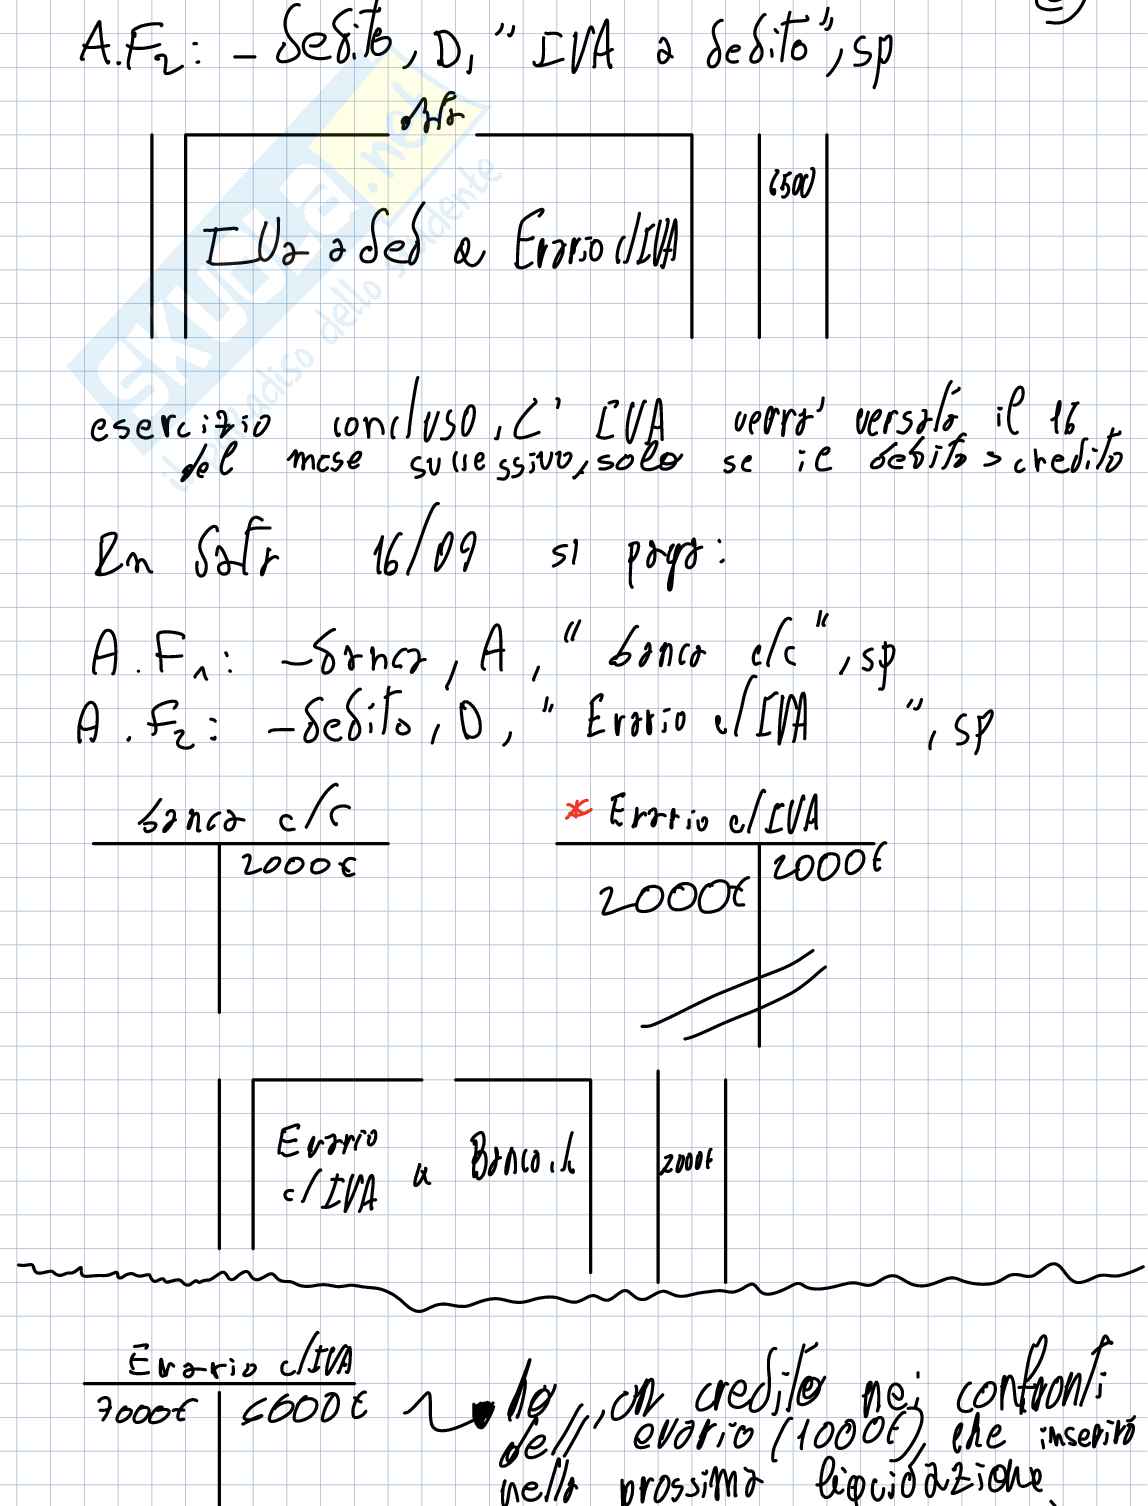 A.F2: - debito, D, " IVA a debito", SP
data
6500
IVA a deb a Erario c/IVA
esercizio concluso, L' IVA verra' versata il 16
del mese successivo, solo se il debito > credito
In data 16/09 si paga:
A.F1: - banca, A, " banca c/c ", SP
A.F2: - debito, D, " Erario c/IVA ", SP
banca c/c
* Erario c/IVA
2000€
2000€ 2000€
Erario c/IVA a Banca c/c
2000€
Erario c/IVA
7000€ 6000€
ho un credito nei confronti
dell' erario (1000€), che inserirò
nella prossima liquidazione.
SKUOLA.net
il paradiso dello studente